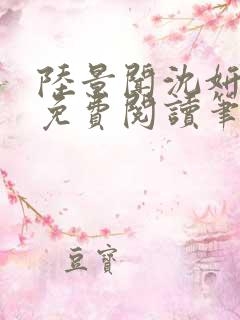 陸景閆沈妍
免費閱讀筆
豆寶